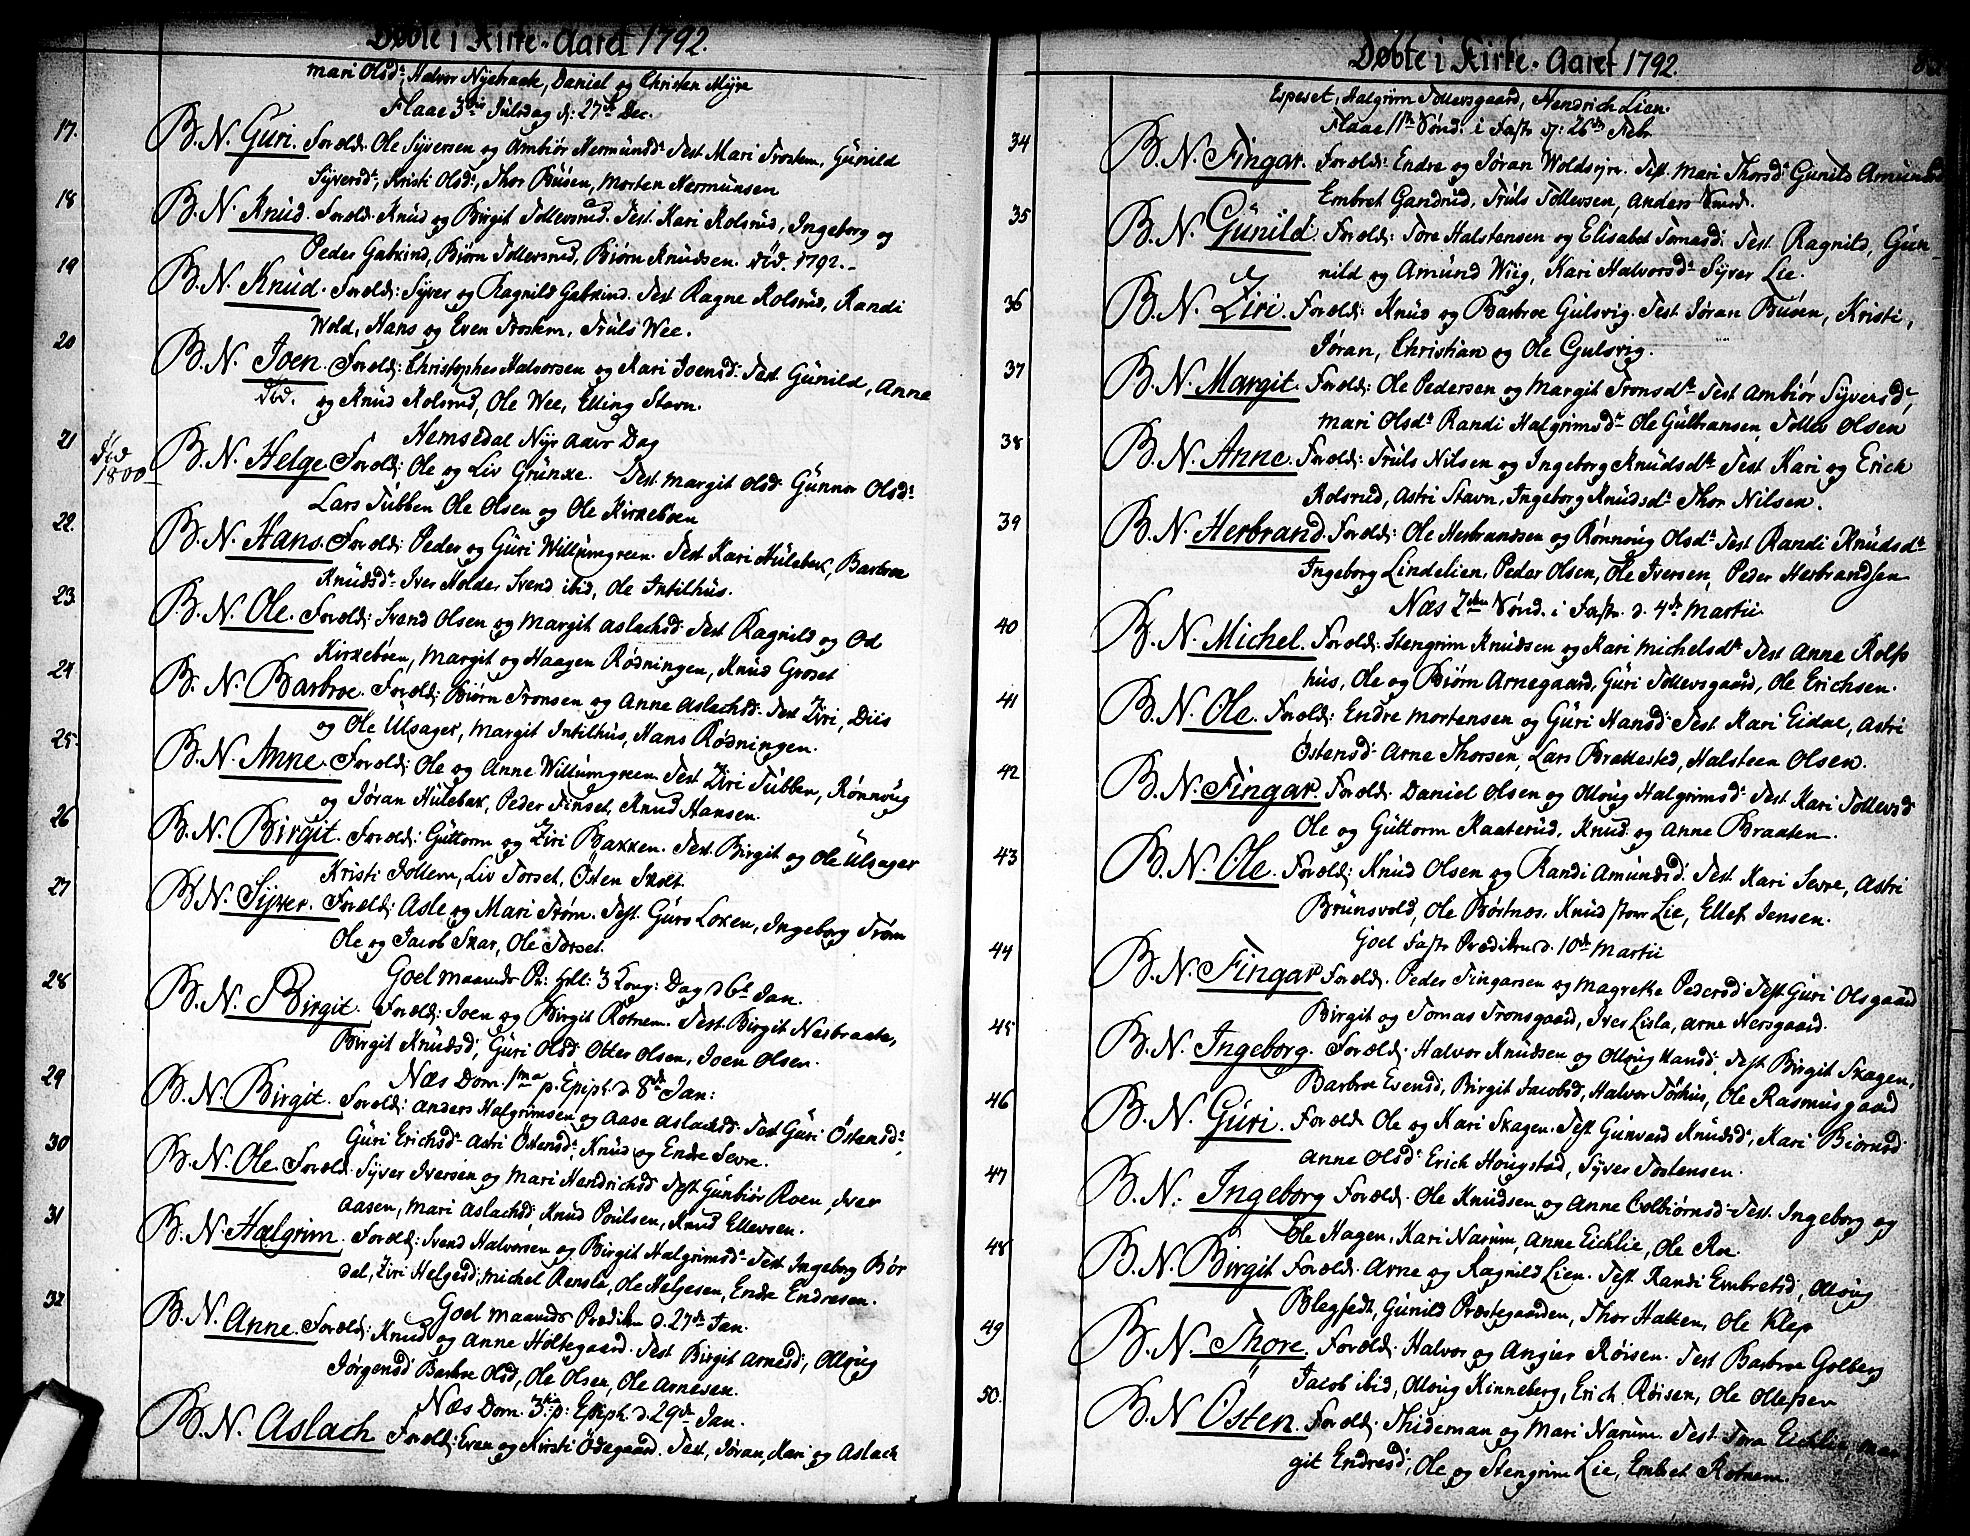 Døbte i Kirke-Aaret 1792.
Mari Olsd: Halvor Nyebrack, Daniel og Christen Myre
Flaae 3die Juledag d: 27de Dec.
17. B. N. Guri. Foræld: Ole Syversen og Ambiør Hermundsd: Test. Mari Trostem, Gunild
Syversd: Kristi Olsd: Thor Busen, Morten Hermunsen
18 B. N. Knud. Foræld: Knud og Birgit Tollevsrud. Test. Kari Rolsrud, Ingeborg og
Peder Gabkind, Biørn Tollevsrud, Biørn Knudsen. død. 1792.
19 B. N. Knud. Foræld: Syver og Ragnild Gabkind. Test Ragne Rolsrud, Randi
Wold, Hans og Even Trostem, Truls Wee.
20 B. N. Joen Foræld: Christopher Halvorsen og Kari Joensd: Test Gunild, Anne
død. og Knud Rolsrud, Ole Wee, Elling Stavn.
Hemsedal Nyt Aars Dag
21 død 1800 B. N. Helge Foræld: Ole og Liv Grünke. Test Margit Olsd: Gunnor Olsd:
Lars Tubben Ole Olsen og Ole Kirkeboen
22. B. N. Hans. Foræld: Peder og Guri Willumgreen. Test Kari Hulebak, Barbroe
Knudsd: Iver Holder Svend ibid, Ole Intilhus.
23 B. N. Ole. Foræld: Svend Olsen og Margit Aslachsd: Test Ragnild og Od
Kirkebøen, Margit og Haagen Rødningen, Knud Groset
24 B. N. Barbroe. Foræld: Biørn Tronsen og Anne Aslachsd: Test Ziri, Diis
og Ole Ulsager, Margit Intilhus, Hans Rødningen.
25 B. N. Anne. Foræld: Ole og Anne Willumgreen. Test Ziri Tubben, Rønnoug
og Jøran Hulebak, Peder Finset, Knud Hansen.
26 B. N. Birgit. Foræld: Guttorm og Ziri Bakken. Test. Birgit og Ole Ulsager
Kristi Tollem, Liv Torset, Østen Skolt
27 B. N. Syver. Foræld: Asle og Mari Trøm. Test. Guro Loken, Ingeborg Trøm
Ole og Jacob Skar, Ole Torset.
Goel Maaneds Pr: Hell: 3 Kong: Dag d 6te Jan.
28 B. N. Birgit. Foræld: Joen og Birgit Rotnem. Test. Birgit Nesbraate,
Birgit Knudsd, Guri Olsd Otter Olsen, Joen Olsen.
Næs Dom. 1ma p. Epiph. d 8de Jan:
29 B. N. Birgit. Foræld: Anders Halgrimsen og Aase Aslachsd: Test Guri Østensd:
Guri Erichsd: Astri Østensd: Knud og Endre Sevre.
30 B. N. Ole. Foræld. Syver Iversen og Mari Hendrichsd Test Gunbiør Roen, Iver
Aasen, Mari Aslachsd; Knud Poulsen, Knud Ellevsen.
31 B. N. Halgrim. Foræld: Svend Halvorsen og Birgit Halgrimsd: Test Ingeborg Bør
del, Ziri Helgesd, Michel Rensla, Ole Helgesen, Endre Endresen.
Goel Maaneds Prædiken d. 27de Jan.
32 B. N. Anne. Foræld: Knud og Anne Holtegaard. Test Birgit Arnesd, Olloug
Jørgensd Barbro Olsd, Ole Olsen, Ole Arnesen.
Næs Dom. 3tia p: Epiph. d. 29de Jan.
B. N. Aslach Foræld: Even og Kirsti Ødegaard. Test. Jøran, Kari og Aslach
Døbte i Kirke-Aaret 1792.
Espeset, Halgrim Tollevsgaard, Hendrich Lien.
Flaae 1te Sønd. i Faste d: 26de Febr.
34 B. N. Fingar. Foræld: Endre og Jøran Woldseje. Test. Mari Thorsd: Gunild Amundsd
Embret Gandrud, Truls Tollevsen, Anders Smed.
35 B. N. Gunild Foræld: Tore Halstensen og Elisabet Tomasd: Test. Ragnild, Gun
nild og Amund Wiig, Kari Halvorsd: Syver Lie.
36 B. N. Ziri. Foræld: Knud og Barbroe Gulsvig. Test Jøran Busen, Kristi,
Jøran, Christian og Ole Gulsvig.
37 B. N. Margit. Foræld: Ole Pedersen og Margit Tronsd: Test Ambiør Syversd:
Mari Olsd: Randi Halgrimsd: Ole Gulbransen, Tollev Olsen
38 B. N. Anne. Foræld: Truls Nilsen og Ingeborg Knudsd: Test Kari og Erich
Rolsrud, Astri Stavn, Ingeborg Knudsd: Thor Nilsen.
39 B. N. Herbrand. Foræld: Ole Herbrandsen og Rønnoug Olsd: Test Randi Knudsd:
Ingeborg Lindelien, Peder Olsen, Ole Iversen, Peder Herbrandsen
Næs 2den Sønd. i Faste d. 4de Martii
40 B. N. Michel. Foræld: Stengrim Knudsen og Kari Michelsd: Test Anne Rolfs
hus, Ole og Biørn Arnegaard, Guri Tollevsgaard, Ole Erichsen.
41 B. N. Ole. Foræld: Endre Mortensen og Guri Hansd: Test Kari Eidal, Astri
Østensd: Arne Thorsen, Lars Brekkested, Halsteen Olsen.
42 B. N. Fingar. Foræld: Daniel Olsen og Olloug Halgrimsd: Test. Kari Tollevsd
Ole og Guttorm Kaaterud, Knud og Anne Braaten.
43 B. N. Ole. Foræld: Knud Olsen og Randi Amundsd: Test. Kari Sevre, Astri
Brunsvold, Ole Børtnes, Knud Store Lie, Ellef Jensen.
Goel Faste Prædiken d. 10de Martii
44 B. N. Fingar Foræld. Peder Fingarsen og Magrethe Pedersd Test Guri Olsgaard
Birgit og Tomas Tronsgaard, Iver Lisla, Arne Hersgaard.
45 B. N. Ingeborg. Foræld: Halvor Knudsen og Olloug Hansd; Test Birgit Skagen,
Barbroe Evensd, Birgit Jacobsd, Halvor Torhus, Ole Rasmusgaard
46 B. N. Guri. Foræld. Ole og Kari Skagen. Test Gunvard Knudsd, Kari Biørnsd
Anne Olsd: Erich Hougstad, Syver Tostensen.
47 B. N. Ingeborg Foræld. Ole Knudsen og Anne Colbiørnsd: Test. Ingeborg og
Ole Hagen, Kari Narum, Anne Eichlie, Ole Ru.
48 B. N. Birgit Foræld. Arne og Ragnild Lien. Test. Randi Embretsd, Olloug
Blegsedt, Gunild Præstegaarden, Thor Halken, Ole Klep
49 B. N. Thore. Foræld: Halvor og Angier Røisen. Test Barbroe Golberg
Jacob ibid, Olloug Kinneberg, Erich Røisen, Ole Ollessen
50. B. N. Østen. Foræld: Thideman og Mari Narum. Test. Tora Eichlie, Mar
git Endresd, Ole og Stengrim Lie, Embret Rotnem.